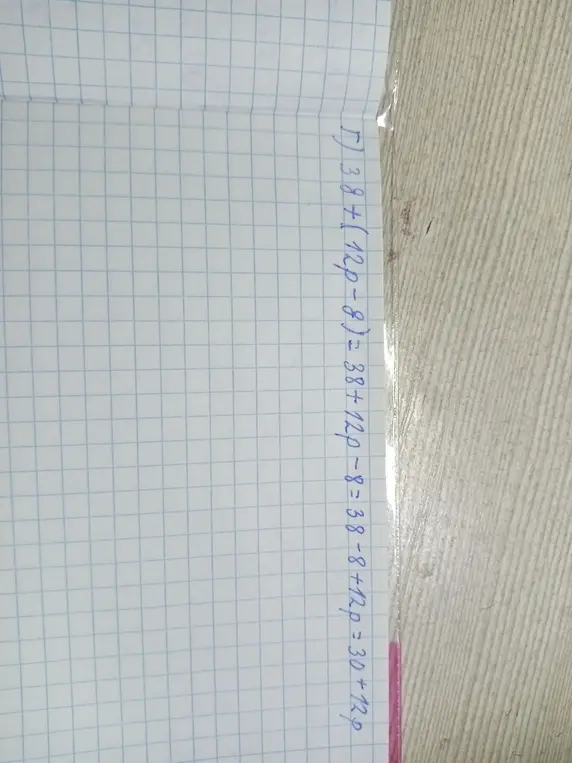 г) 38+(12p-8)=38+12p-8=38-8+12p=30+12p